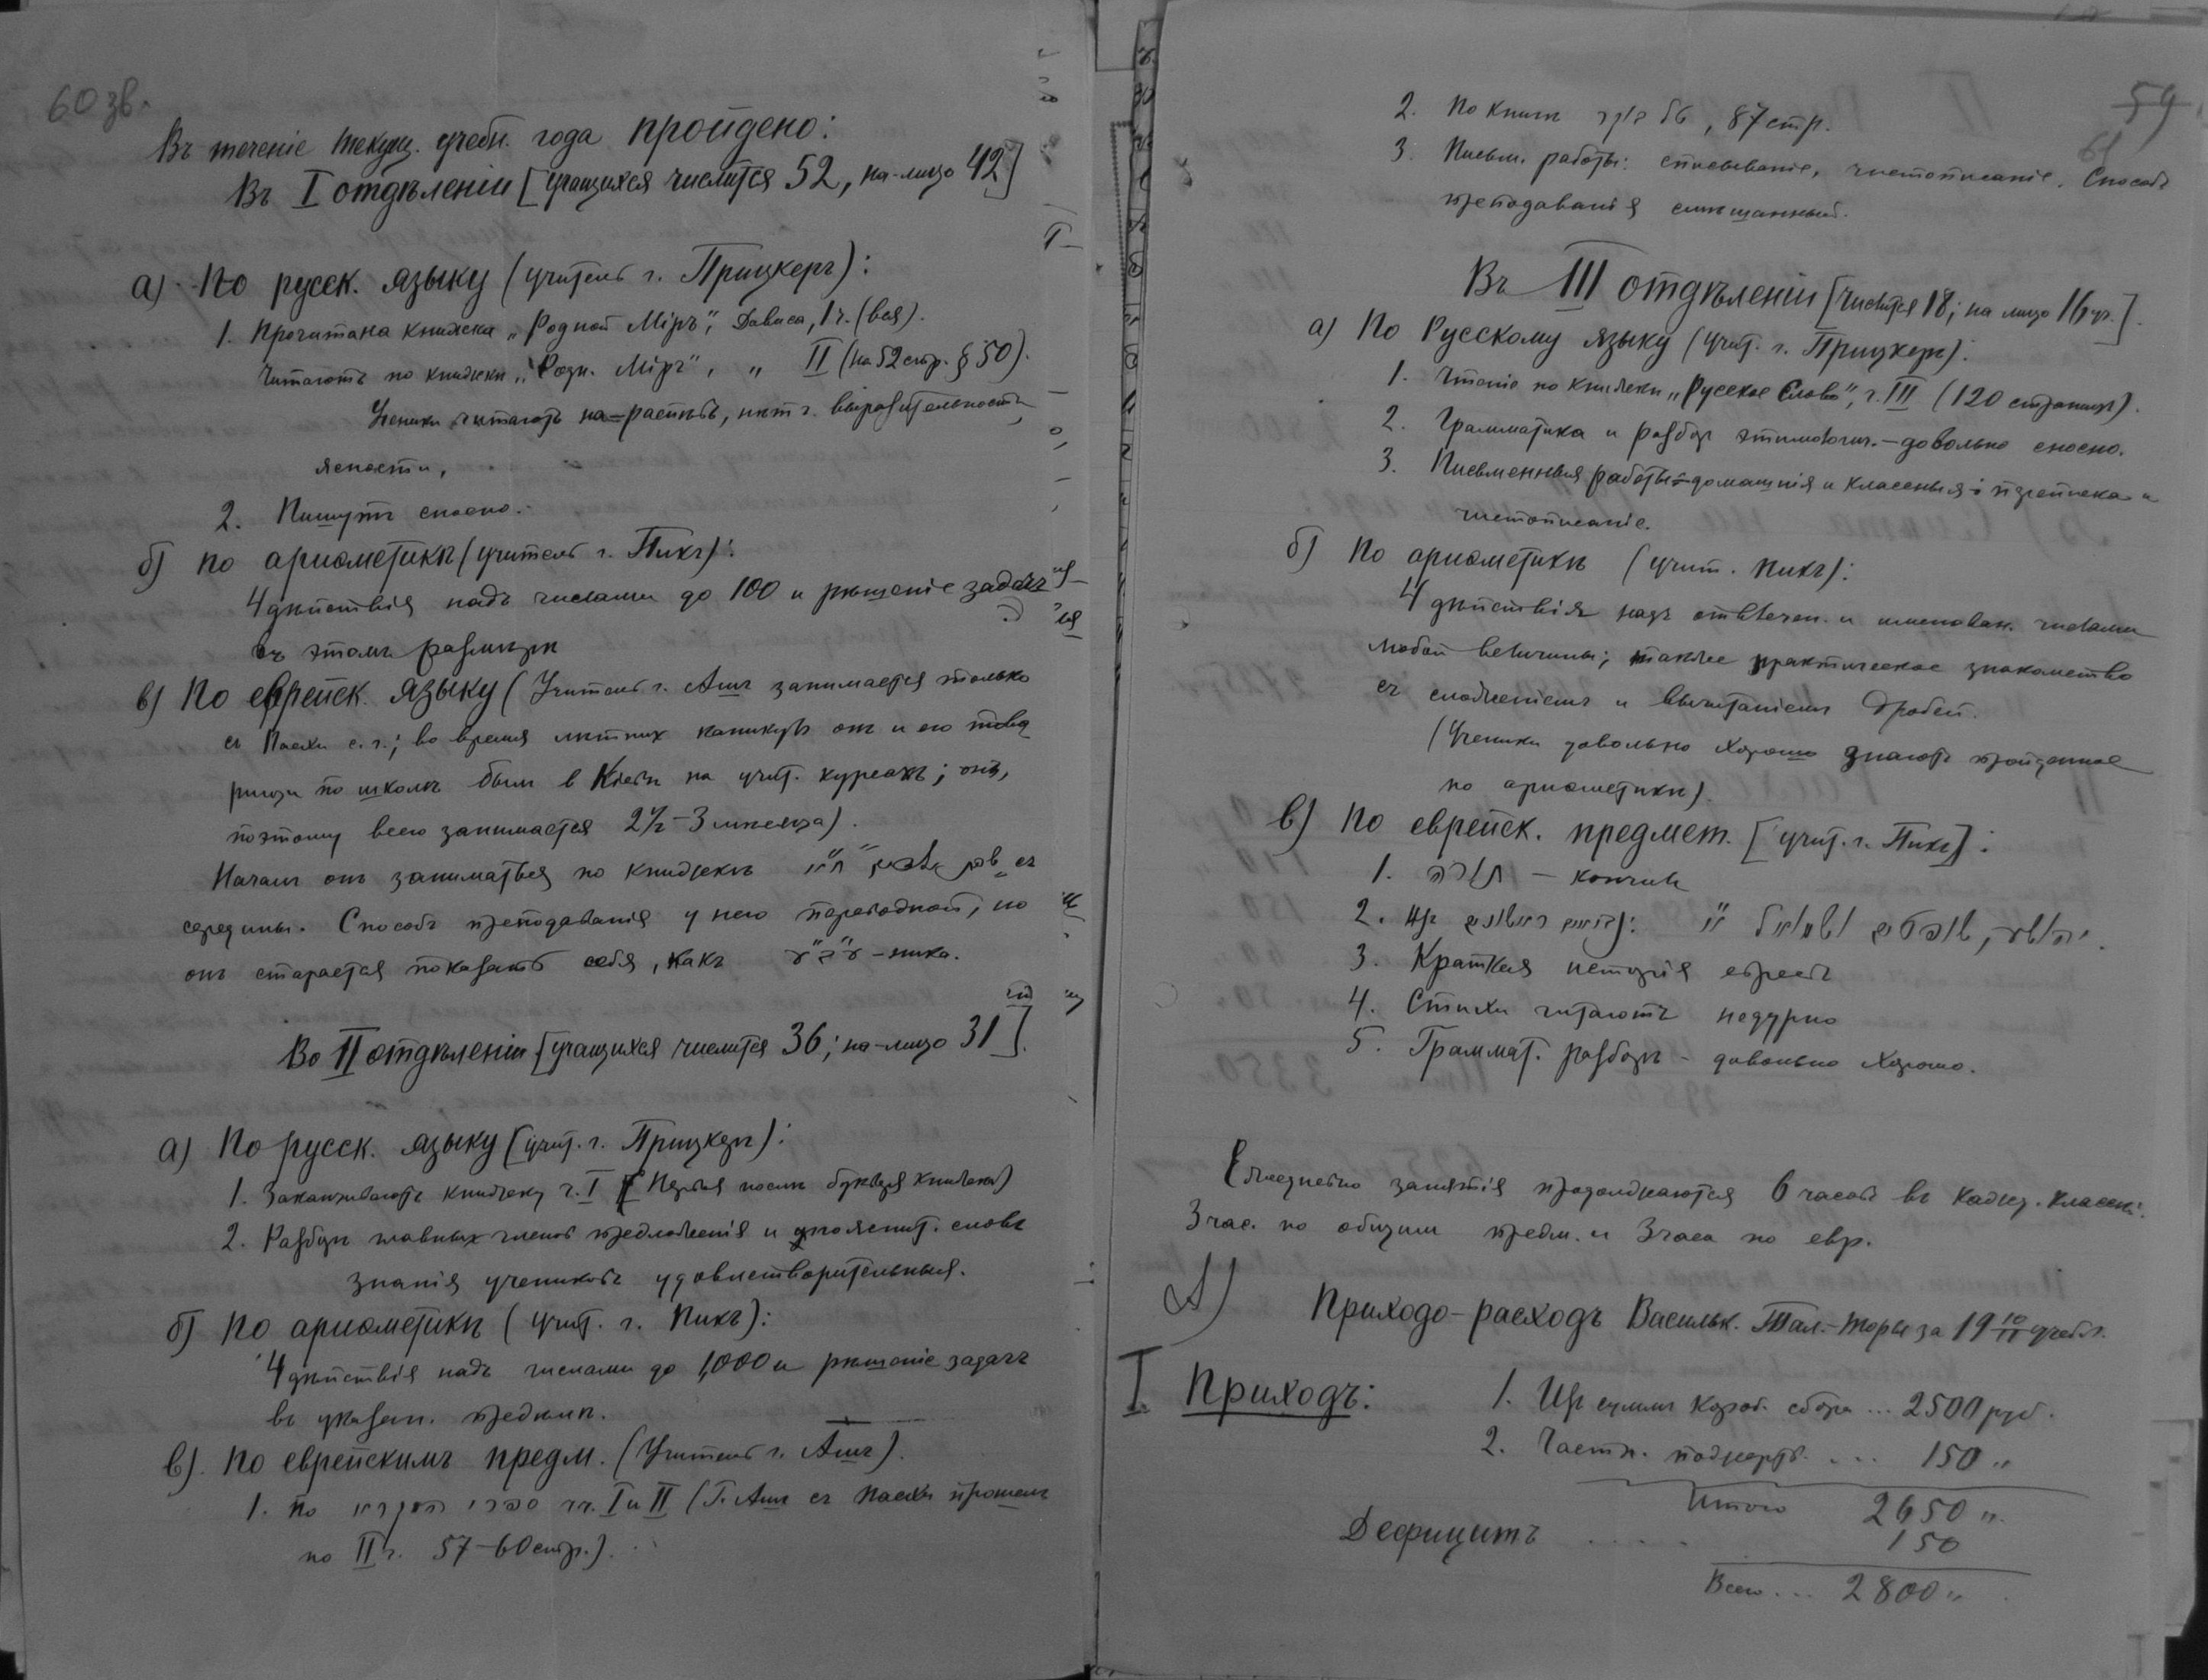 60 зв.
Въ теченіе текущ. учебн. года пройдено:
Въ I отдѣленіи [учащихся числится 52, на-лицо 42]
а) По русск. языку (учитель г. Прицкеръ):
1. Прочитана книжка „Родной Міръ", Дависа, 1 ч. (вся).
Читаютъ по книжкѣ „Родн. Міръ", „ II (на 52 стр. § 50).
Ученики читаютъ на-распѣвъ, нѣтъ выразительности,
ясности,
2. Пишутъ сносно.
б) по ариѳметикѣ (учитель г. Пикъ):
4 дѣйствія надъ числами до 100 и рѣшеніе задачъ
въ этомъ размѣрѣ
в) По еврейск. языку (Учитель г. Ашъ занимается только
съ Пасхи с. г.; во время лѣтнихъ каникулъ онъ и его това
рищи по школѣ были в Кіевѣ на учит. курсахъ; онъ,
поэтому всего занимается 2½-3 мѣсяца).
Началъ онъ заниматься по книжкѣ съ
середины. Способъ преподаванія у него переводной, но
онъ старается показать себя, какъ עב"ע-ника.
Во II отдѣленіи [учащихся числится 36; на-лицо 31].
а) По русск. языку (учит. г. Прицкеръ):
1. Заканчиваютъ книжку ч. I [Первая послѣ букваря книжка)
2. Разборъ главныхъ членовъ предложенія и пояснит. словъ
знанія учениковъ удовлетворительныя.
б) По ариѳметикѣ (учит. г. Пикъ):
4 дѣйствія надъ числами до 1,000 и рѣшеніе задачъ
въ указан. предѣлѣ.
в). По еврейскимъ предм. (Учитель г. Ашъ).
1. По ч. I и II (Г. Ашъ съ Пасхи прошелъ
по II ч. 57-60 стр.).
59
61
2. По книгѣ , 87 стр.
3. Письм. работы: списываніе, чистописаніе. Способъ
преподаванія смѣшанный.
Въ III отдѣленіи [числится 18; на лицо 16 уч.].
а) По Русскому языку (учит. г. Прицкеръ):
1. Чтеніе по книжкѣ „Русское Слово", ч. III (120 страницъ).
2. Грамматика и разборъ этимологич. - довольно сносно.
3. Письменныя работы-домашнія и классныя: переписка и
чистописаніе.
б) По ариѳметикѣ (учит. Пикъ):
4 дѣйствія надъ отвлечен. и именован. числами
любой величины; также практическое знакомство
съ сложеніемъ и вычитаніемъ дробей.
(Ученики довольно хорошо знаютъ пройденное
по ариѳметикѣ).
в) По еврейск. предмет. [учит. г. Пикъ]:
1. תורה - кончили
2. נביאים ראשונים:
3. Краткая исторія евреевъ
4. Стихи читаютъ недурно
5. Граммат. разборъ - довольно хорошо.
Ежедневно занятія продолжаются 6 часовъ въ кажд. классѣ:
3 час. по общимъ предм. и 3 часа по евр.
А) Приходо-расходъ Васильк. Тал.-Торы за 19 10/11 учебн.
I Приходъ: 1. Изъ суммъ короб. сбора ... 2500 руб.
2. Частн. пожертв. ... 150 "
Итого 2650 ".
Дефицитъ ..... 150
Всего ... 2800 "